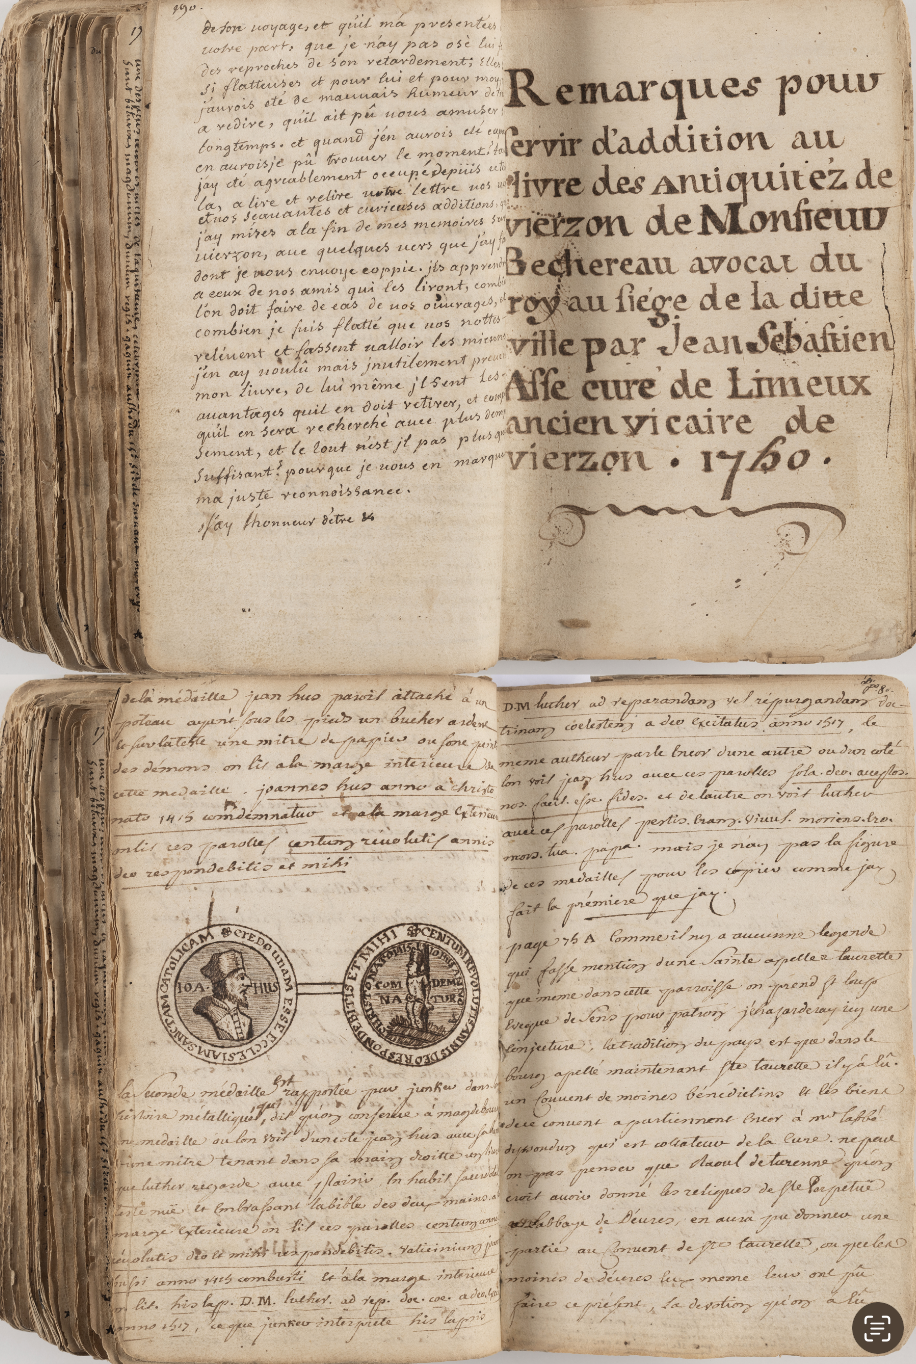 190.
de son voyage, et qu'il m'a presentées
votre part, que je n'ay pas osé lui
des reproches de son retardement; Elles
si flatteuses et pour lui et pour moy
j'aurois eté de mauvais humeur de
a redire, qu'il ait pû vous amuser
longtemps. et quand j'en aurois eté
en auroisje pû trouver le moment,
jay eté agreablement occupé depuis
la, a lire et relire votre lettre
et vos scavantes et curieuses additions,
j'ay mises a la fin de mes memoires sur
vierzon, avec quelques vers que j'ay
dont je vous envoye coppie. ils
a ceux de nos amis qui les liront,
l'on doit faire de cas de vos ouvrages,
combien je suis flatté que vos nottes
relévent et fassent valloir les
j'en ay voulû mais inutilement
mon livre, de lui même il sent les
avantages qu'il en doit retirer, et
qu'il en sera recherché avec plus
sement, et le tout n'est il pas plus
suffisant? pourque je vous en marque
ma juste reconnoissance.
j'ay l'honneur d'etre &
Remarques pour
servir d'addition au
livre des Antiquitéz de
vierzon de Monsieur
Bechereau avocat du
roy au siége de la ditte
ville par Jean Sébastien
Asse curé de Limeux
ancien vicaire de
vierzon . 1760 .
de la médaille jean hus paroit attaché à un
poteau ayant sous les pieds un bucher ardent
et sur la teste une mitre de papier ou sont peint
des démons on lit a la marge interieure de
cette medaille . joannes hus anno a christo
nato 1415 comdemnatur et a la marge Exterieure
on lit ces parolles centum revolutis annis
deo respondebitis et mihi
CREDO UNAM ESSE ECCLESIAM SANCTAM CATOLICAM
IOA HUS
CENTUM REVOLUTIS ANNIS DEO RESPONDEBITIS ET MIHI
CON DEM
NA TUR
la Seconde médaille est rapportée par junker dans
histoire metallique, qui dit qu'on conserve à
une médaille ou lon voit d'un coté jean hus avec
une mitre tenant dans sa main droitte un
que luther regarde avec plaisir En habit
teste nüe et Embrassant la bible des deux mains a
marge exterieure on lit ces parolles centum
revolutis deo et mihi respondebitis. vaticinium
hussi anno 1415 combusti Et à la marge interieure
on lit. his lap. D.M. luther. ad rep. doc. coe. a deo
anno 1517, ce que junker interprete his lapsis
D.M luther ad reparandam vel repurgandam doc-
trinam coelestem a deo Excitatus anno 1517, le
meme autheur parle Encor d'une autre ou d'un coté
lon voit jean hus avec ces parolles sola. deo. acceptos.
nos. facit. esse. fides. et de lautre on voit luther
avec ces parolles pestis. Eram. vivus. moriens. Ero.
mors. tua. papa. mais je nay pas la figure
de ces medailles pour les copier comme jay
fait la premiere que jay.
page 75 A Comme il ny a aucunne legende
qui fasse mention d'une Sainte apellée taurette
que meme dans cette parroisse on prend St
Eveque de Sens pour patron j'hazarderay icy une
Conjecture. la tradition du pays est que dans le
bourg apellé maintenant Ste taurette il y à Eû
un couvent de moines bénédictins et les biens
de ce couvent apartiennent Encor à mr labbé
qui est collateur de la Cure. ne peut
on pas penser que Raoul de turenne qu'on
croit avoir donné les reliques de Ste Perpetue
a labbaye de Déures, en aura pu donner une
partie au Couvent de Ste taurette, ou que les
moines de déures luy meme leur ont pû
faire ce présent, la devotion qu'on a Eû